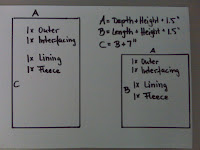 A
1x Outer
1x Interfacing
1x Lining
1x Fleece
C
A = Depth + Height + 1.5"
B = Length + Height + 1.5"
C = B + 7"
A
1x Outer
1x Interfacing
1x Lining
1x Fleece
B